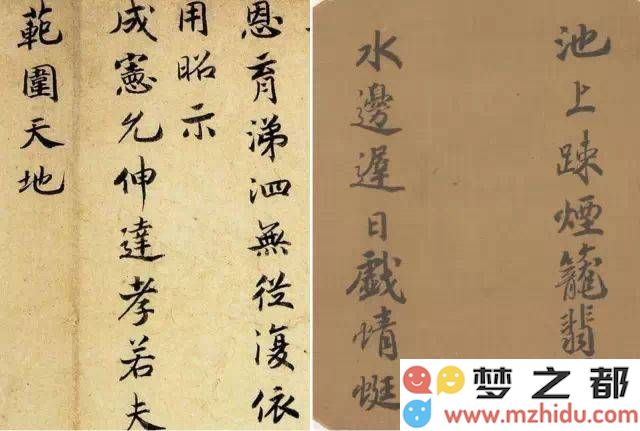 恩育涕泗無從復依
用昭示
成憲允伸達孝若夫
範圍天地
池上踈煙籠翡
水邊遲日戲蜻蜓
梦之都
www.mzhidu.com